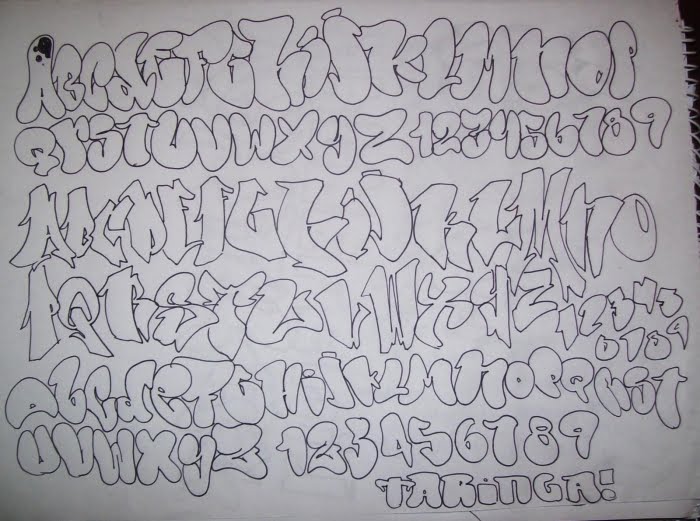 ABCdEFGHiJKLMNOP
QRSTUVWXYZ123456789
ABCDEFGHiJKLMNO
PQRSTUVWXYZ12345
6789
abcdeFGHiJKLMNOPQRST
UVWXYZ 123456789
TARiNGA!